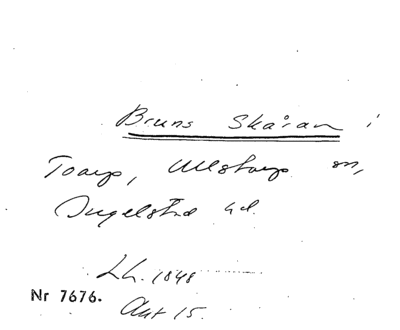 Bruns Skåran i
Toarp, Ullstorps sn,
Ingelstad hd.
Lh. 1848
Nr 7676.
Akt 15.